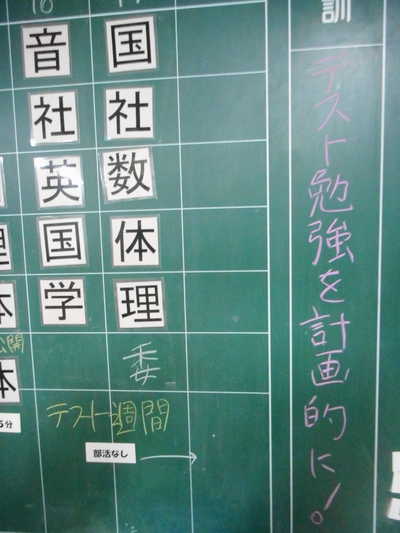 訓
テスト勉強を計画的に!
国
社
数
体
理
委
音
社
英
国
学
テスト週間
部活なし
公開
体
5分